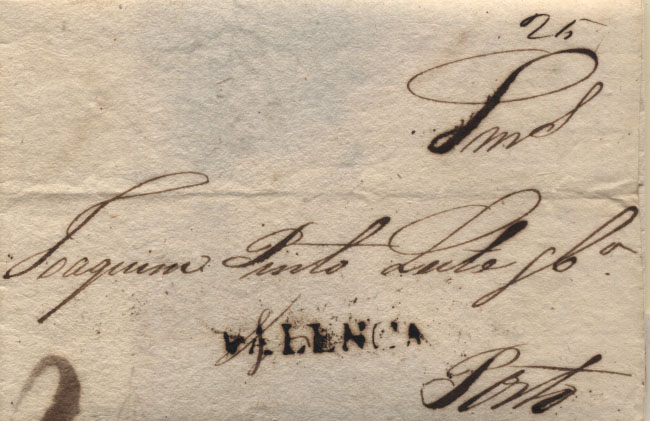 25
Sm.s
Joaquim Pinto Leite & C.a
VALENCA
Porto